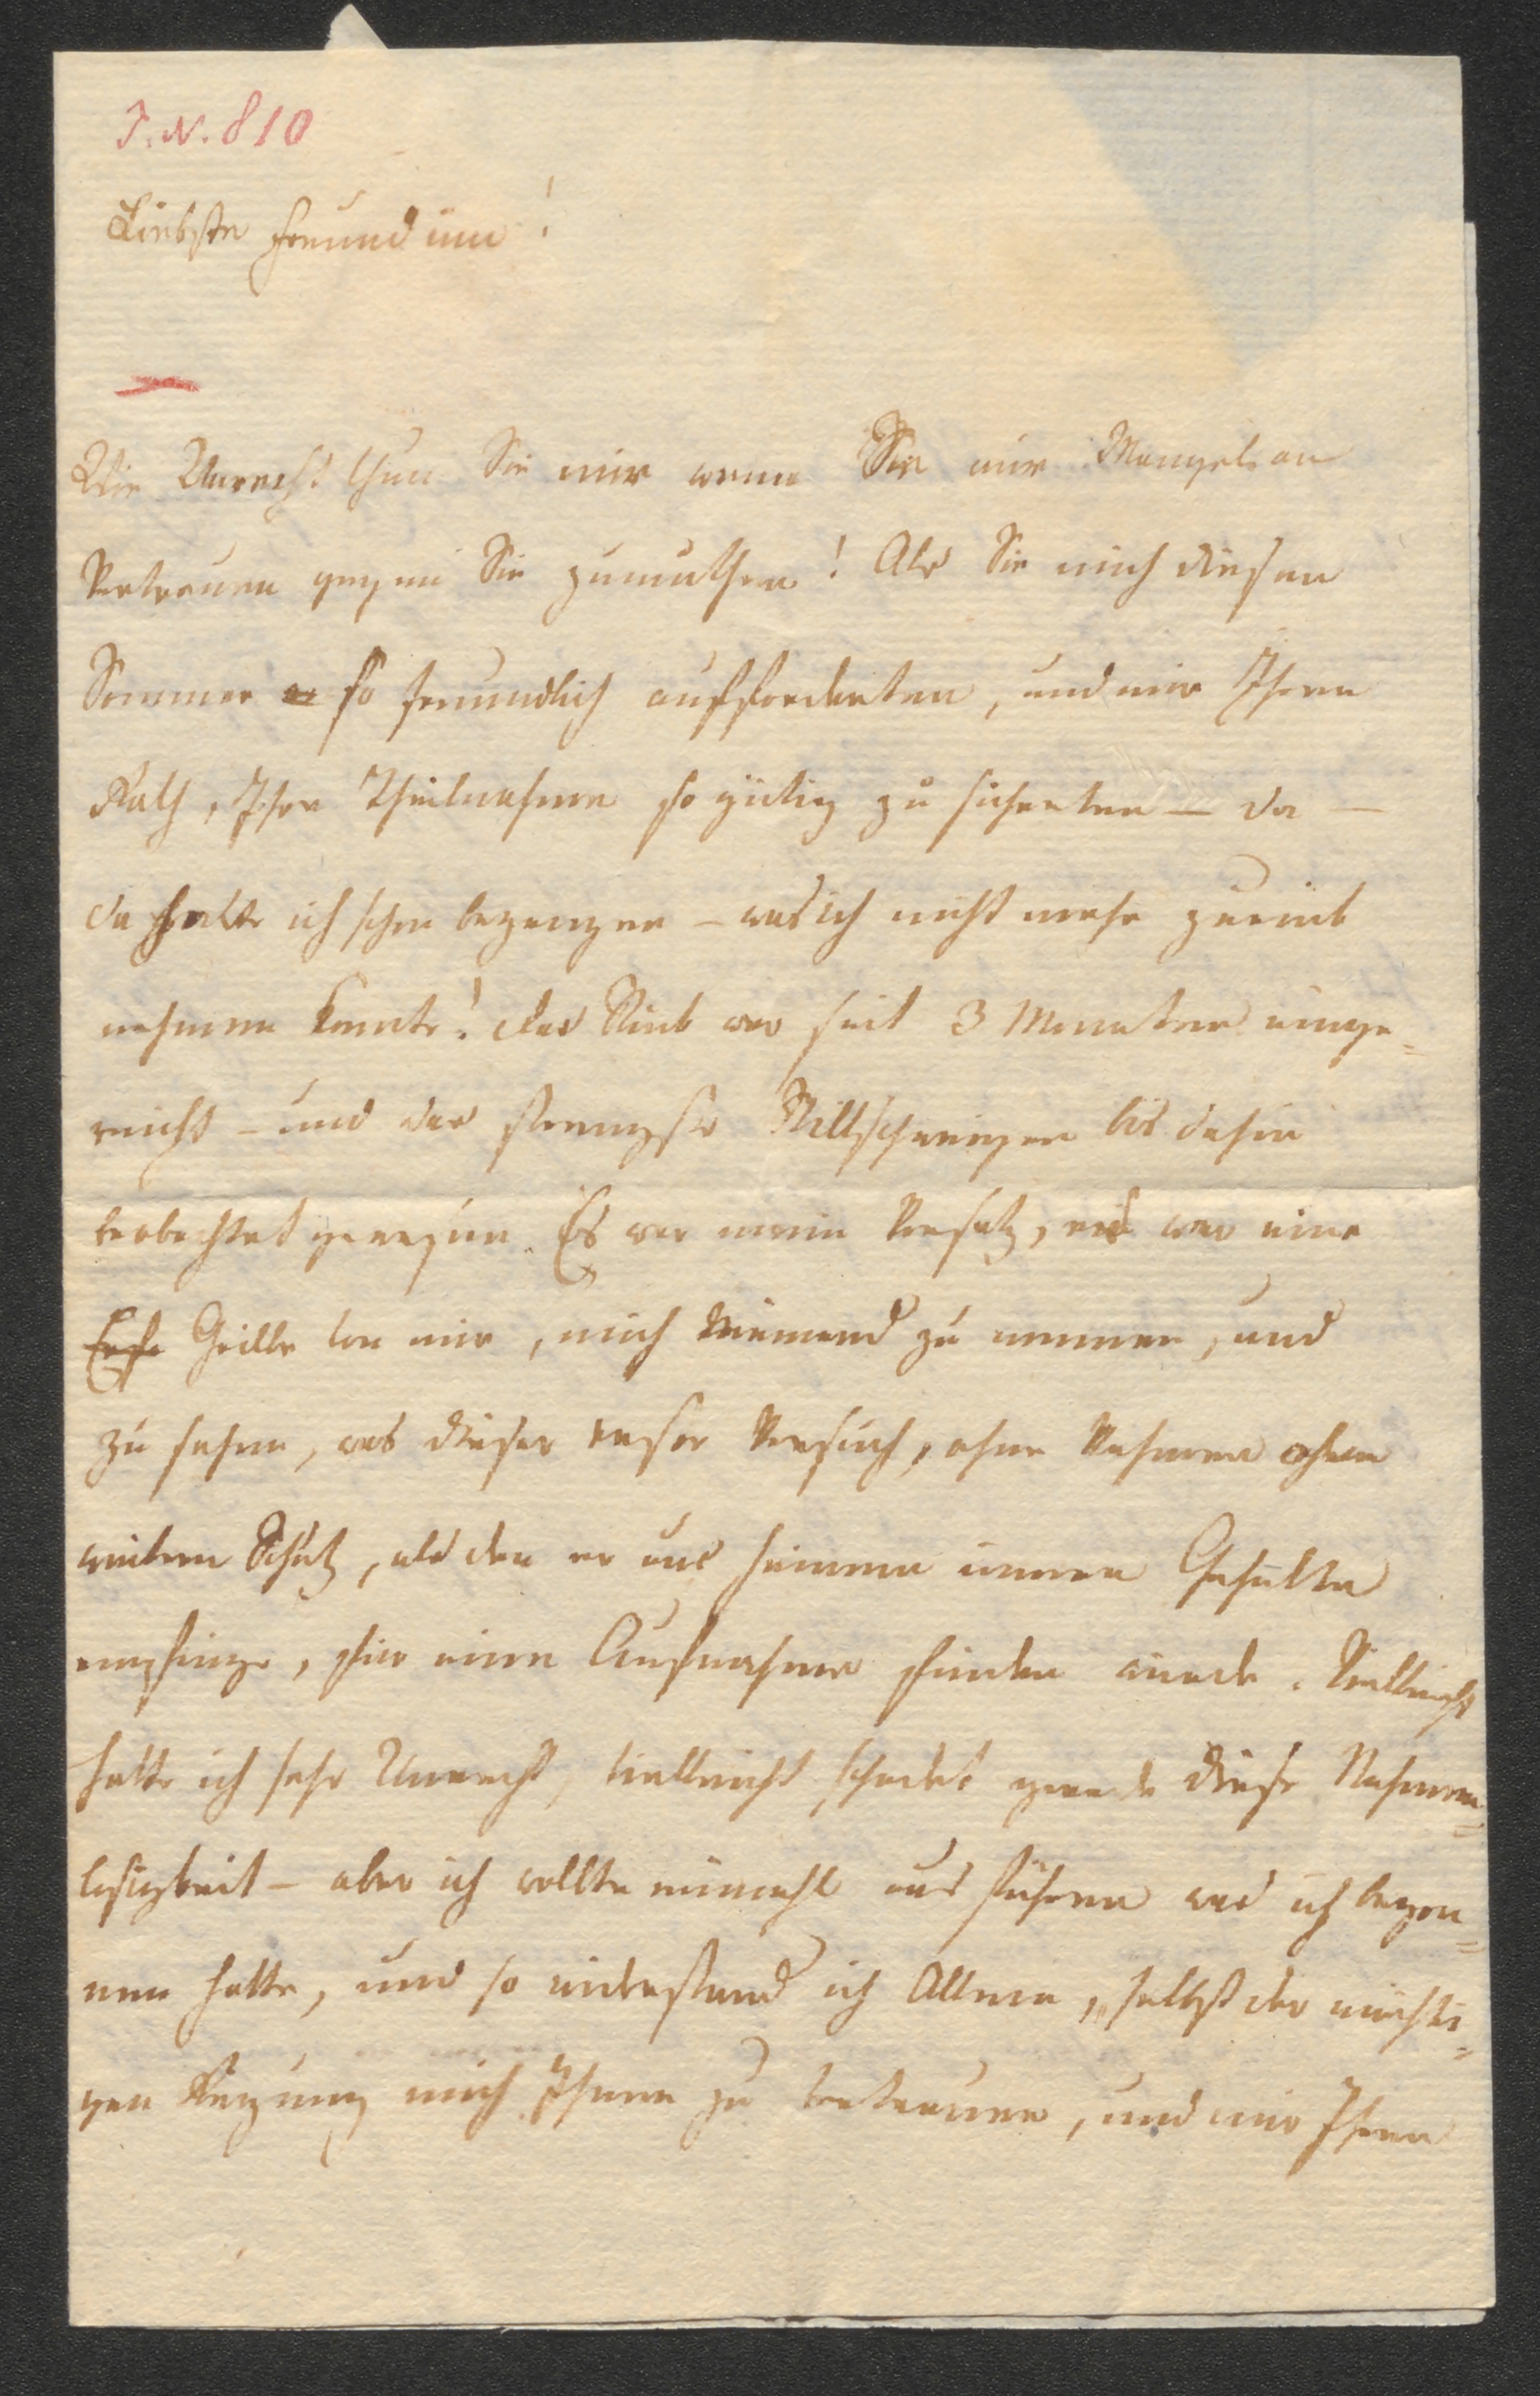 I. N. 810
Liebste Freundinn!
Wie Unrecht thun Sie mir wenn Sie mir Mangel an
Vertrauen gegen Sie zumuthen! Als Sie mich diesen
Sommer so freundlich aufforderten, und mir Ihren
Rath, Ihre Theilnahme so gütig zu sicherten – da –
da hatte ich schon begangen – was ich nicht mehr zurück
nehmen konnte! das Stück war seit 3 Monaten einge=
reicht – und das strengste Stillschweigen bis dahin
beobachtet gewesen. Es war mein Vorsatz, es war eine
Grille von mir, mich Niemand zu nennen, und
zu sehen, was dieser erste Versuch, ohne Nahmen ohne
weitern Schutz, als den er aus seinem innern Gehalte
empfinge, für eine Aufnahme finden würde. Vielleicht
hatte ich sehr Unrecht, vielleicht schadet gerade diese Nahmen=
losigkeit – aber ich wollte einmahl aus führen was ich begon=
nen hatte, und so widerstand ich Allem, selbst der mächti=
gen Regung mich Ihnen zu vertrauen, und mir Ihren